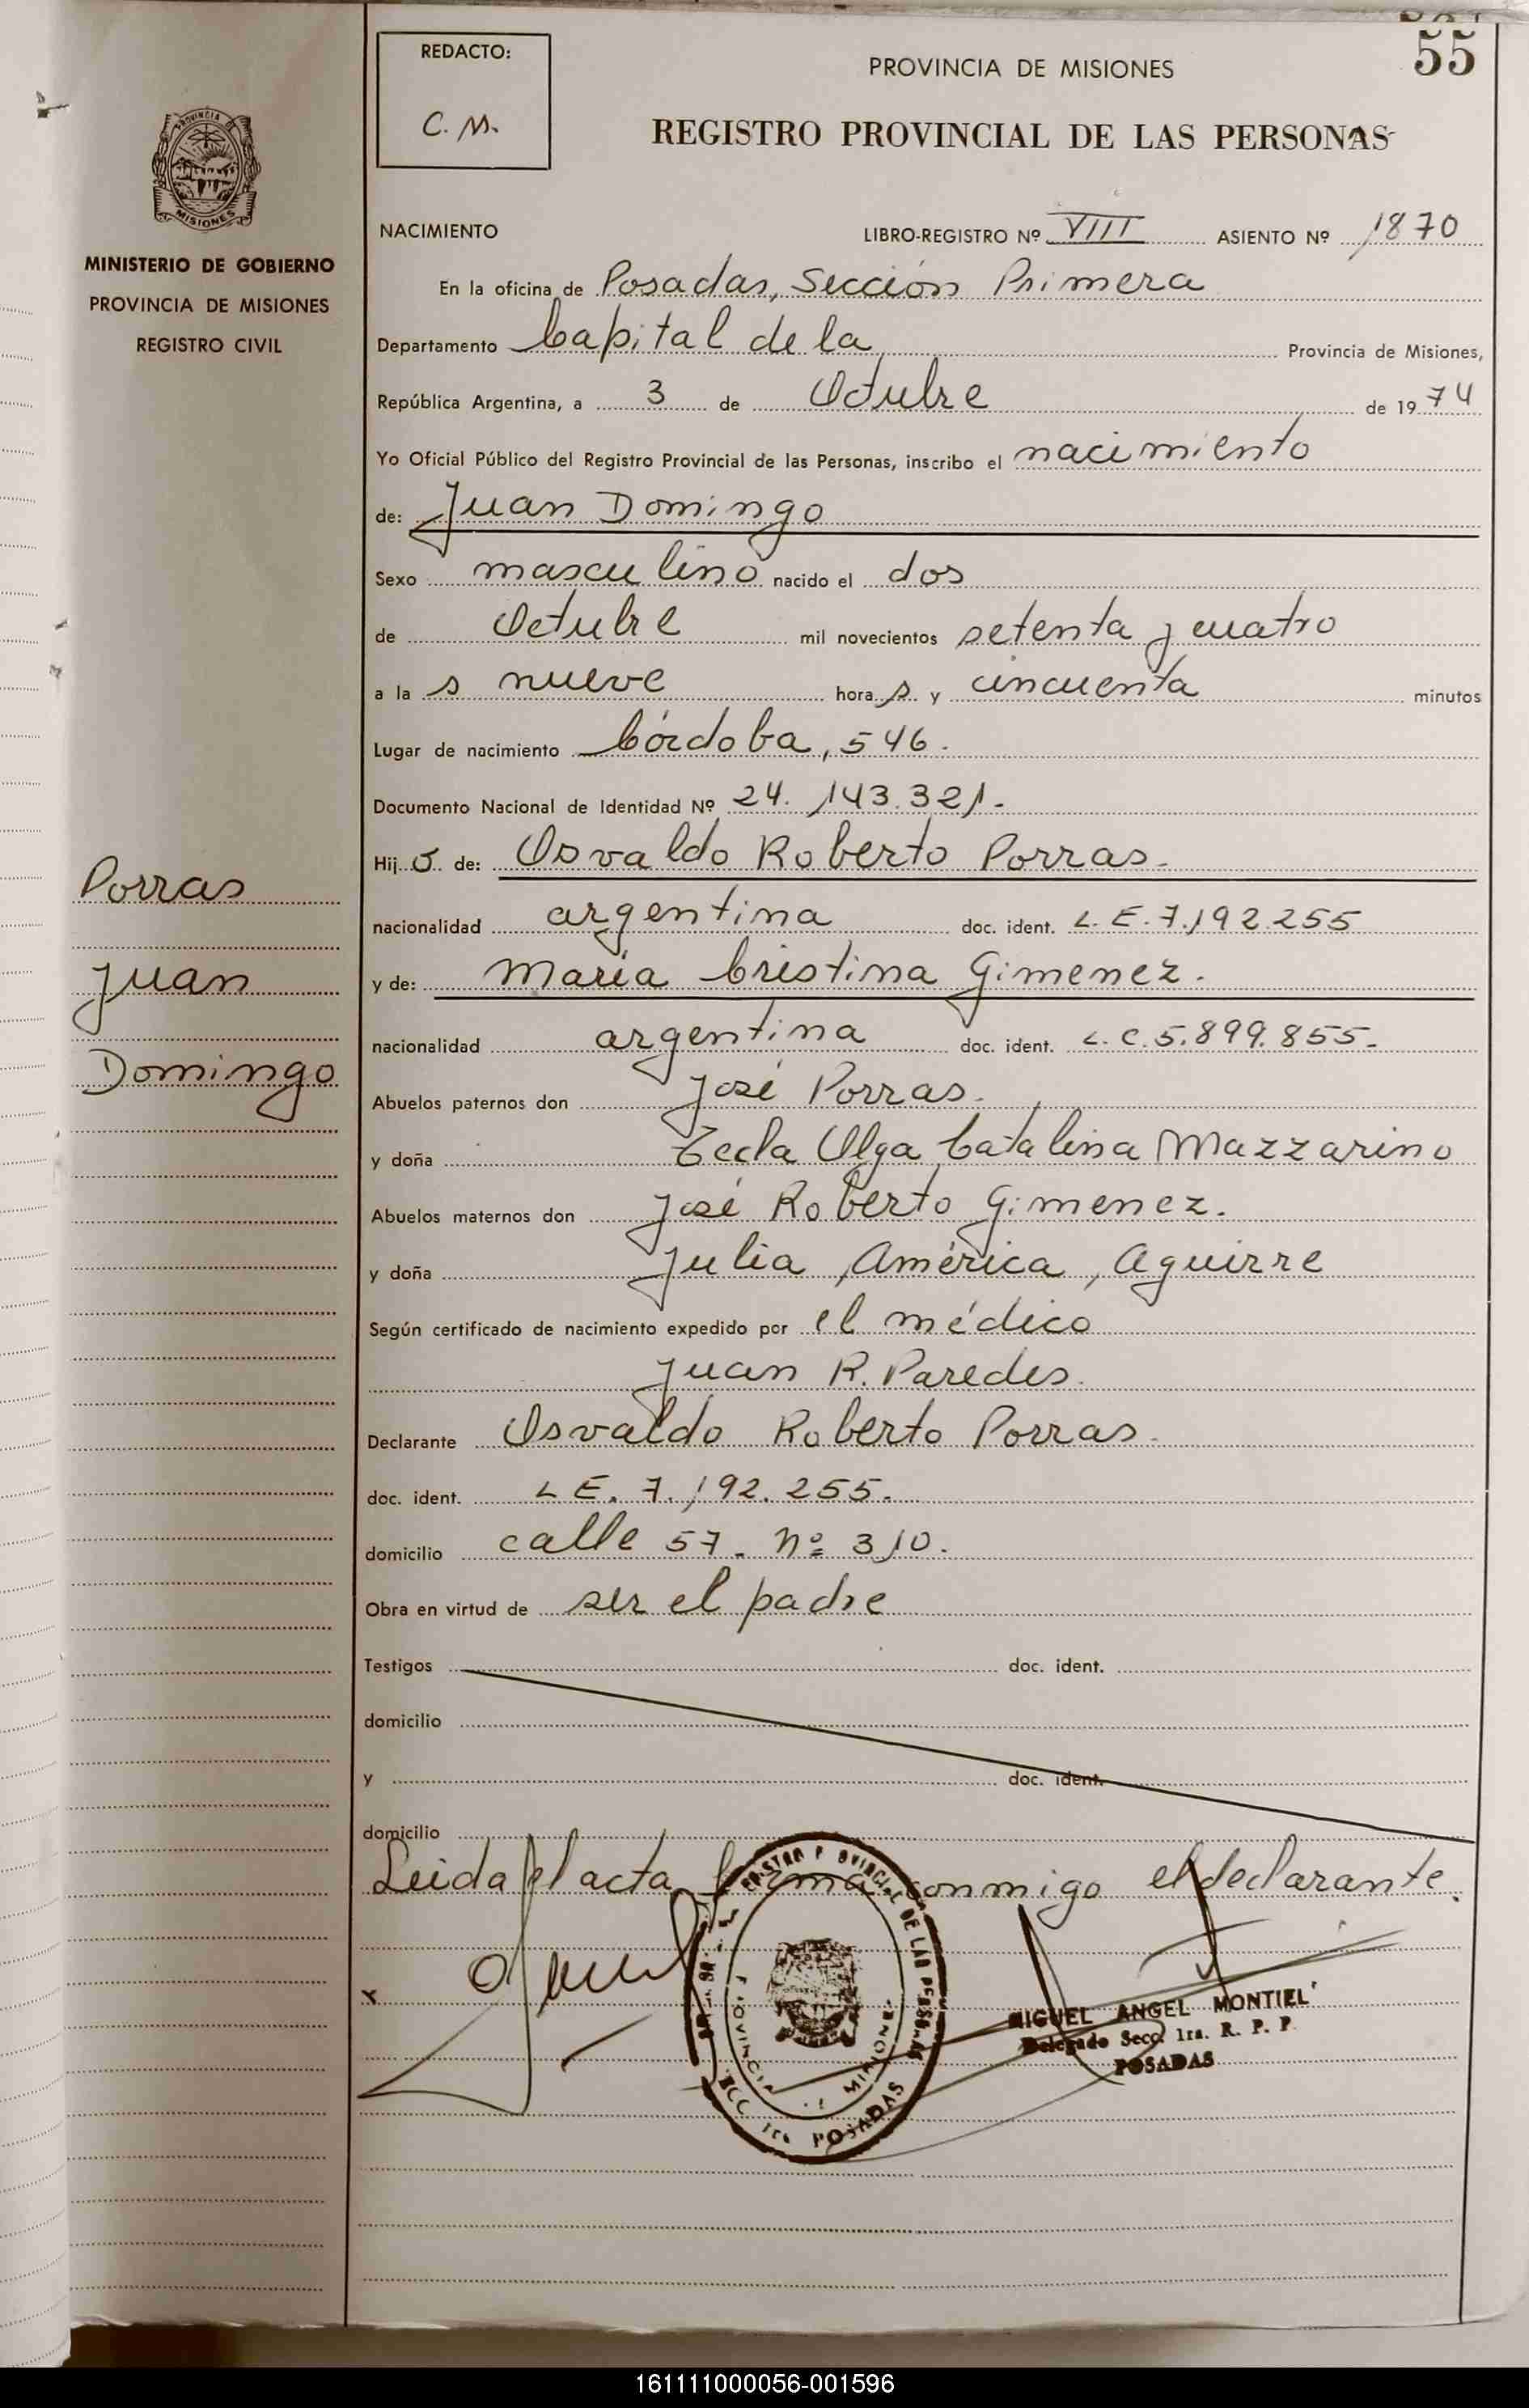 55
REDACTO:
C. M.
PROVINCIA DE MISIONES
REGISTRO PROVINCIAL DE LAS PERSONAS
PROVINCIA DE
MISIONES
MINISTERIO DE GOBIERNO
PROVINCIA DE MISIONES
REGISTRO CIVIL
NACIMIENTO LIBRO-REGISTRO Nº VIII ASIENTO Nº 1870
En la oficina de Posadas, Sección Primera
Departamento Capital de la Provincia de Misiones,
República Argentina, a 3 de Octubre de 1974
Yo Oficial Público del Registro Provincial de las Personas, inscribo el nacimiento
de: Juan Domingo
Sexo masculino nacido el dos
de Octubre mil novecientos setenta y cuatro
a las nueve horas y cincuenta minutos
Lugar de nacimiento Córdoba, 546.
Documento Nacional de Identidad Nº 24.143.321.
Hijo de: Osvaldo Roberto Porras.
nacionalidad argentina doc. ident. L.E. 7.192.255
y de: María Cristina Gimenez.
nacionalidad argentina doc. ident. L.C. 5.899.855.
Abuelos paternos don José Porras.
y doña Tecla Olga Catalina Mazzarino
Abuelos maternos don José Roberto Gimenez.
y doña Julia, América, Aguirre
Según certificado de nacimiento expedido por el médico
Juan R. Paredes.
Declarante Osvaldo Roberto Porras.
doc. ident. L E. 7.192.255.
domicilio calle 57. Nº 310.
Obra en virtud de ser el padre
Testigos doc. ident.
domicilio
y doc. ident.
domicilio
Leida el acta firma conmigo el declarante.
Porras
Juan
Domingo
x
MIGUEL ANGEL MONTIEL
Delegado Secc. 1ra. R. P. P.
POSADAS
PROVINCIAL DE LAS PERSONAS
PROVINCIA MISIONES
SECC. 1ra POSADAS
161111000056-001596